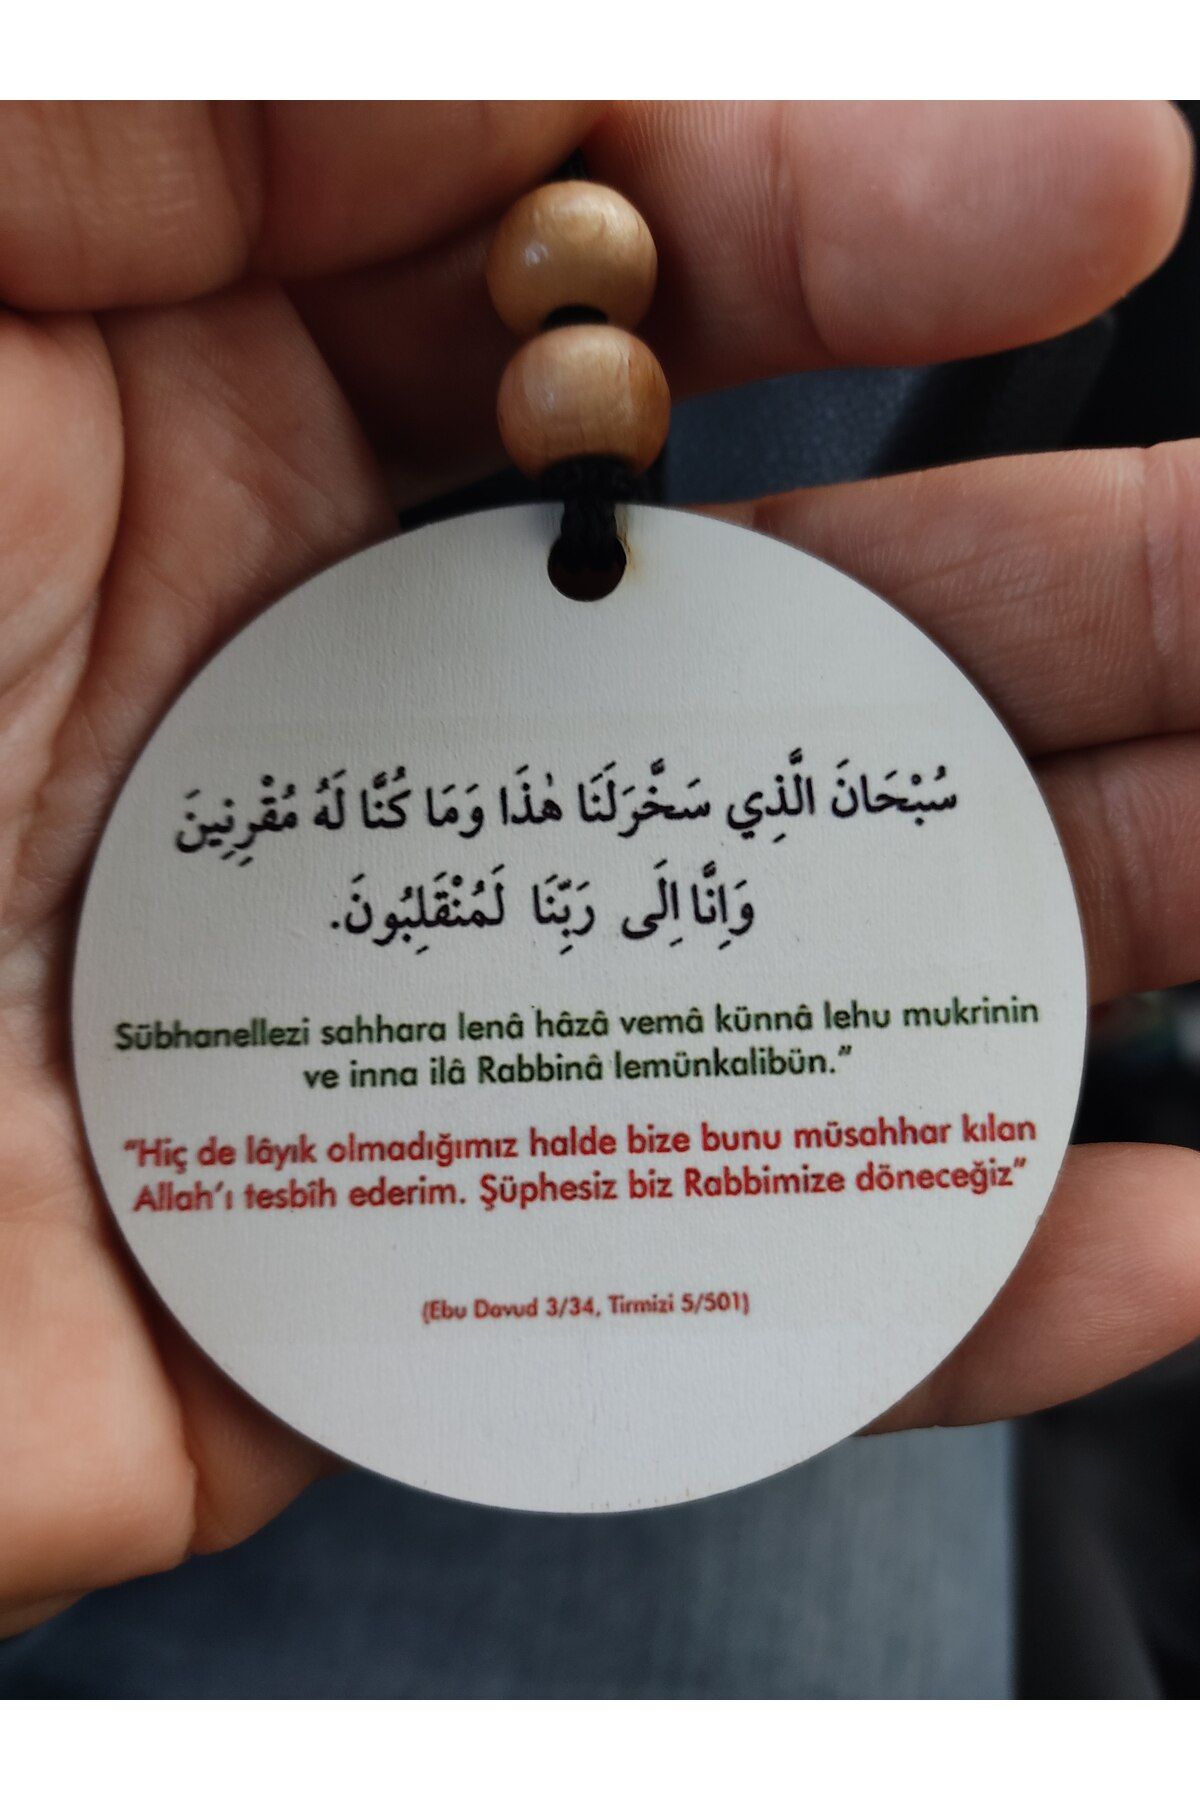 سُبْحَانَ الَّذِي سَخَّرَلَنَا هٰذَا وَمَا كُنَّا لَهُ مُقْرِنِينَ
وَاِنَّا اِلَى رَبِّنَا لَمُنْقَلِبُونَ.
Sübhanellezi sahhara lenâ hâzâ vemâ künnâ lehu mukrinin
ve inna ilâ Rabbinâ lemünkalibün.”
“Hiç de lâyık olmadığımız halde bize bunu müsahhar kılan
Allah’ı tesbîh ederim. Şüphesiz biz Rabbimize döneceğiz”
(Ebu Davud 3/34, Tirmizi 5/501)